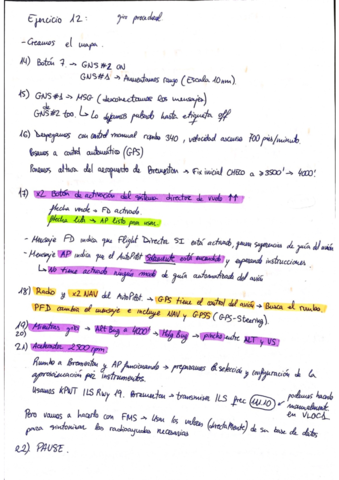 Ejercicio 12:
- Creamos el mapa.
14) Botón 7 → GNS#2 ON
GNS#1 → Aumentamos rango (Escala 10nm).
15) GNS#1 → MSG (desconectamos los mensajes)
GNS#2 too. ↳ Lo dejamos pulsado hasta etiqueta off
16) Despegamos con control manual rumbo 340, velocidad ascenso 700 pies/minuto.
Pasamos a control automático (GPS)
Ponemos altura del aeropuerto de Bremerton → Fix inicial CHICO a ≥3500' → 4000'.
17) x2 Botón de activación del sistema director de vuelo ↑↑
flecha verde → FD activado.
flecha lista → AP listo para usar.
- Mensaje FD indica que Flight Director SI está activado, genera sugerencias de guía del avión
- Mensaje AP indica que el AutoPilot solamente está encendido y esperando instrucciones
↳ No tiene activado ningún modo de guía automatizada del avión
18) Radio y x2 NAV del AutoPilot → GPS tiene el control del avión → Busca el rumbo.
PFD cambia el mensaje e incluye NAV y GPSS (GPS-Steering).
19) → Alt Bug a 4000' → → entre ALT y VS.
20)
21) Acelerador 2500 rpm.
Rumbo a Bremerton y AP funcionando → preparamos el selección y configuración de la
aproximación por instrumentos.
Usamos KPWT ILS Rwy 19. Bremerton → transmisor ILS frec 111.10 → podemos hacerlo manualmente en VLOC1
Pero vamos a hacerlo con FMS → Usa los valores (directamente) de su base de datos
para sintonizar las radioayudas necesarias
22) PAUSE.